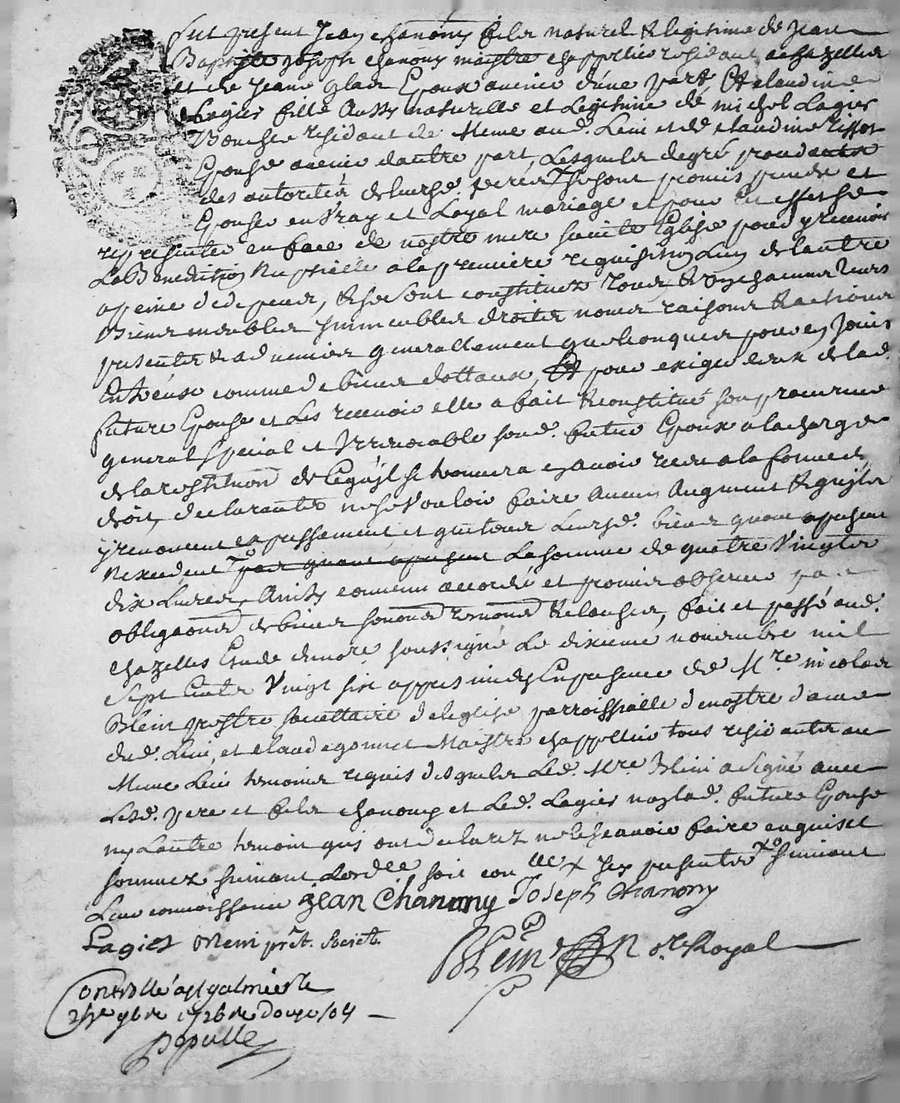 fut present Jean chanony fils naturel & legitime de Jean
Baptiste Joseph chanony maistre chappellier residant a chazelles
et de Jeanne Epoux avenir d'une part, Et claudine
Lagier fille Aussy naturelle et Legitime de michel Lagier
residant de Meme aud. Lieu et de claudine
Epouse avenir d'autre part, Lesquels degré procedants
des autorités de leursd. peres se sont promis prendre et
Epouser en Vray et Loyal mariage et pour cet effet se
representer en face de nostre mere sainte Eglise pour y recevoir
La Benediction Nuptielle a la premiere requisition L'un de l'autre
a peine de depens, & se sont constitués tous & un chacuns leurs
Biens meubles Immeubles droits noms raisons & actions
presents & advenir generallement quelconques pour en Jouir
comme de biens dottaux, Et pour exiger ceux de lad.
future Epouse et Les recevoir elle a fait & constitué son procureur
general special et Irrevocable sond. futur Epoux a la charge
de la restitution de ce qu'il se trouvera en avoir receu a la forme du
droit, declarants ne se Vouloir faire Aucun Augment & qu'ils
y renoncent expressement et que tous leursd. biens quant a present
N'excedent La somme de quatre Vingts
dix Livres, Ainsy convenu accordé et promis observer par
obligaons de biens soumons renonons & clauses, fait et passé aud.
chazelles Etude du nore soussigné Le dixieme novembre mil
Sept Cents Vingt six appres midy En presence de Mre nicolas
Blein prestre societtaire de l'eglise parroissialle de nostre dame
dud. Lieu, et claude gonnet Maistre chappellier tous residants au
Meme Lieu temoins requis desquels Led. Mre Blein a signé avec
Lesd. pere et fils chanony et Led. Lagier non lad. future Epouse
ny L'autre temoin qui ont declarez ne le scavoir faire enquis et
sommez suivant L'ordce soit conlle x suivant
Leur connoissance Jean Chanony Joseph Chanony
Lagier Blein prêt. societ.
Blein nre Royal
Controllé a st galmier le
9bre 1726 Reçu
Populle